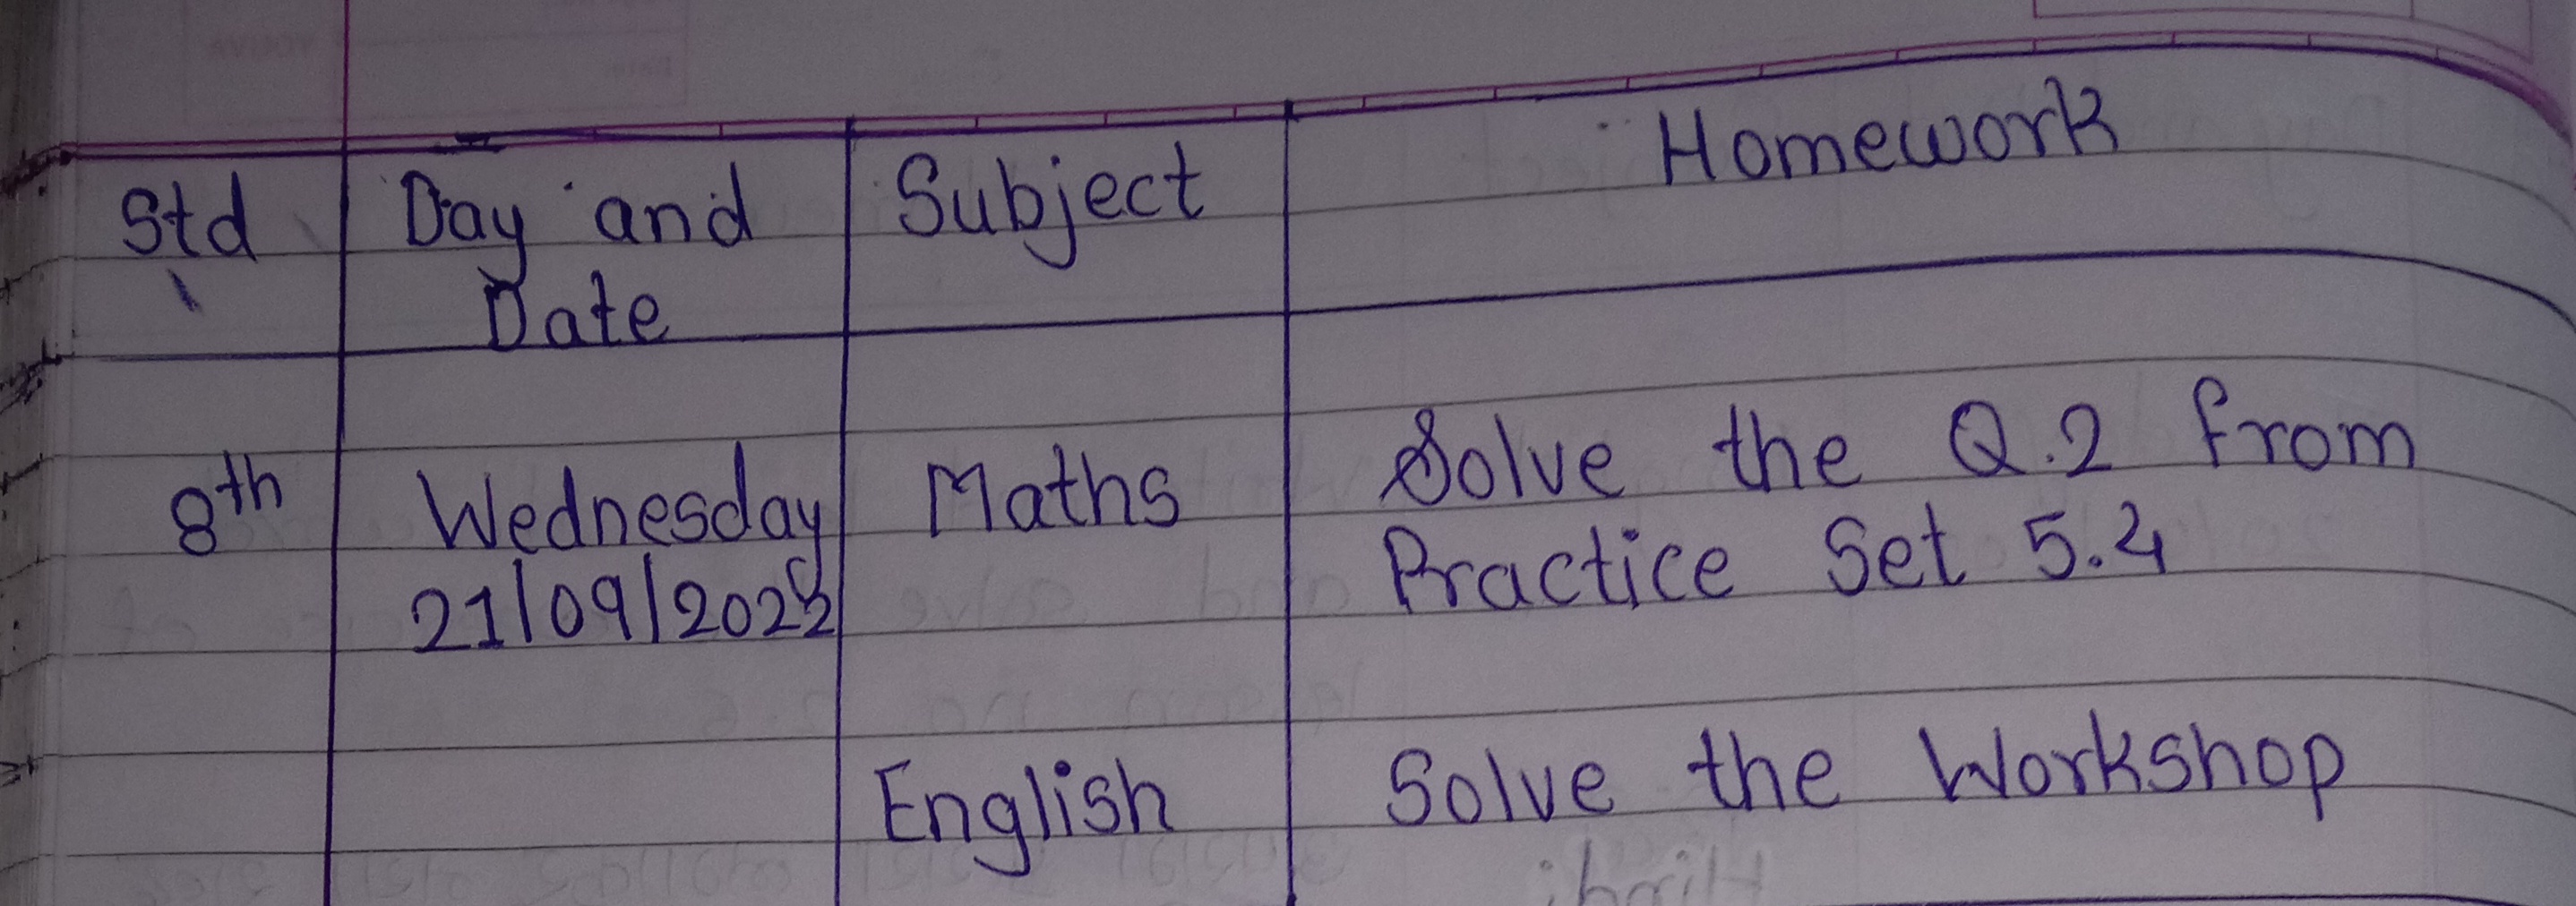 Std
Day and
Date
Subject
Homework
8th
Wednesday
21/09/2022
Maths
Solve the Q.2 from
Practice Set 5.4
English
Solve the Workshop